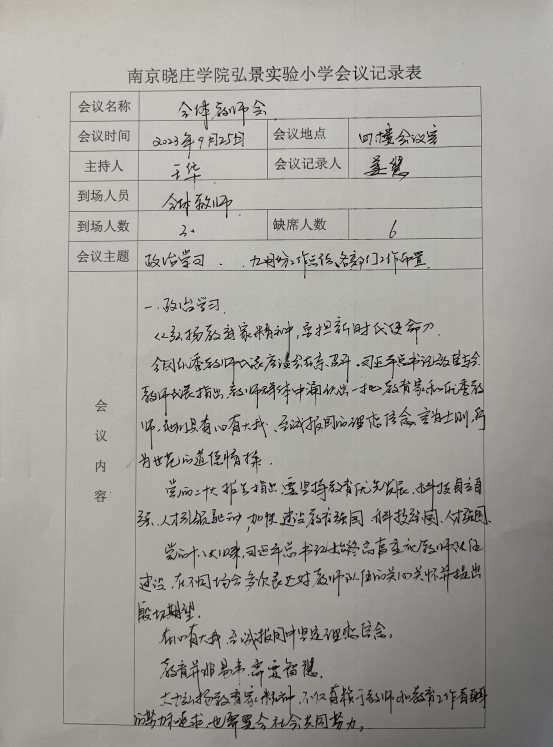 南京晓庄学院弘景实验小学会议记录表
会议名称 全体教师会
会议时间 2023年9月25日 会议地点 四楼会议室
主持人 王华 会议记录人 姜慧
到场人员 全体教师
到场人数 30 缺席人数 6
会议主题 政治学习 九月份工作总结、各部门工作布置
会议内容
一.政治学习
《弘扬教育家精神,勇担新时代使命》
全国优秀教师代表座谈会在京召开,习近平总书记致信与会
教师代表指出,教师群体中涌现出一批教育家和优秀教
师,他们具有心有大我、至诚报国的理想信念,言为士则、行
为世范的道德情操。
党的二十大报告指出,要坚持教育优先发展、科技自立自
强、人才引领驱动,加快建设教育强国、科技强国、人才强国。
党的十八大以来,习近平总书记始终高度重视教师队伍
建设,在不同场合多次表达对教师队伍的关心关怀并提出
殷切期望。
在心有大我、至诚报国中坚定理想信念。
教育并非易事,需要智慧。
大力弘扬教育家精神,不仅有赖于教师和教育工作者自身
的努力和追求,也需要全社会共同努力。